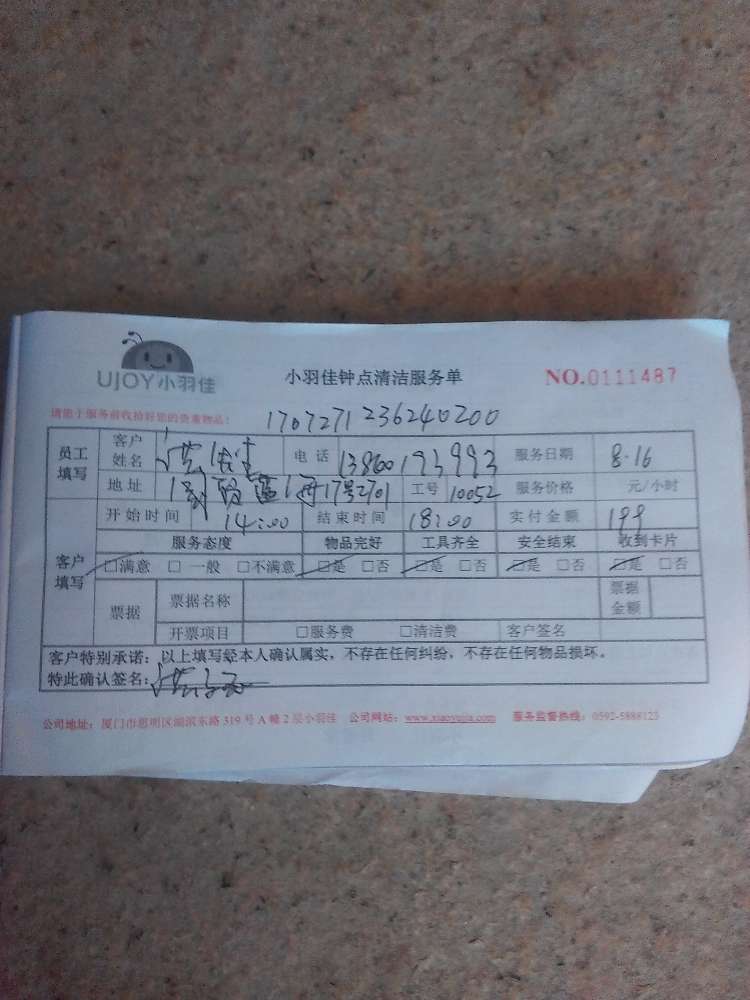 UJOY小羽佳
小羽佳钟点清洁服务单
NO.0111487
请您于服务前收拾好您的贵重物品!
1707271236240200
员工填写 客户姓名 电话 13860193993 服务日期 8.16
地址 17号2701 工号 10052 服务价格 元/小时
客户填写 开始时间 14:00 结束时间 18:00 实付金额 199
服务态度 物品完好 工具齐全 安全结束 收到卡片
□满意 □一般 □不满意 □是 □否 □是 □否 □是 □否 □是 □否
票据 票据名称 票据金额
开票项目 □服务费 □清洁费 客户签名
客户特别承诺：以上填写经本人确认属实，不存在任何纠纷，不存在任何物品损坏。
特此确认签名：
公司地址：厦门市思明区湖滨东路 319 号 A 幢 2 层小羽佳 公司网站：www.xiaoyujia.com 服务监督热线：0592-5888123